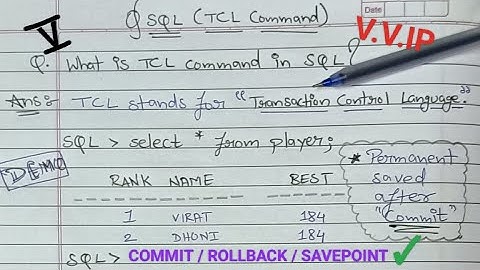 V
SQL (TCL Command)
Date
V.V.IP
Q. What is TCL command in SQL?
Ans: TCL stands for "Transaction Control Language."
SQL > select * from player;
DEMO
RANK NAME BEST
1 VIRAT 184
2 DHONI 184
* Permanent
saved
after
"Commit"
SQL> COMMIT / ROLLBACK / SAVEPOINT